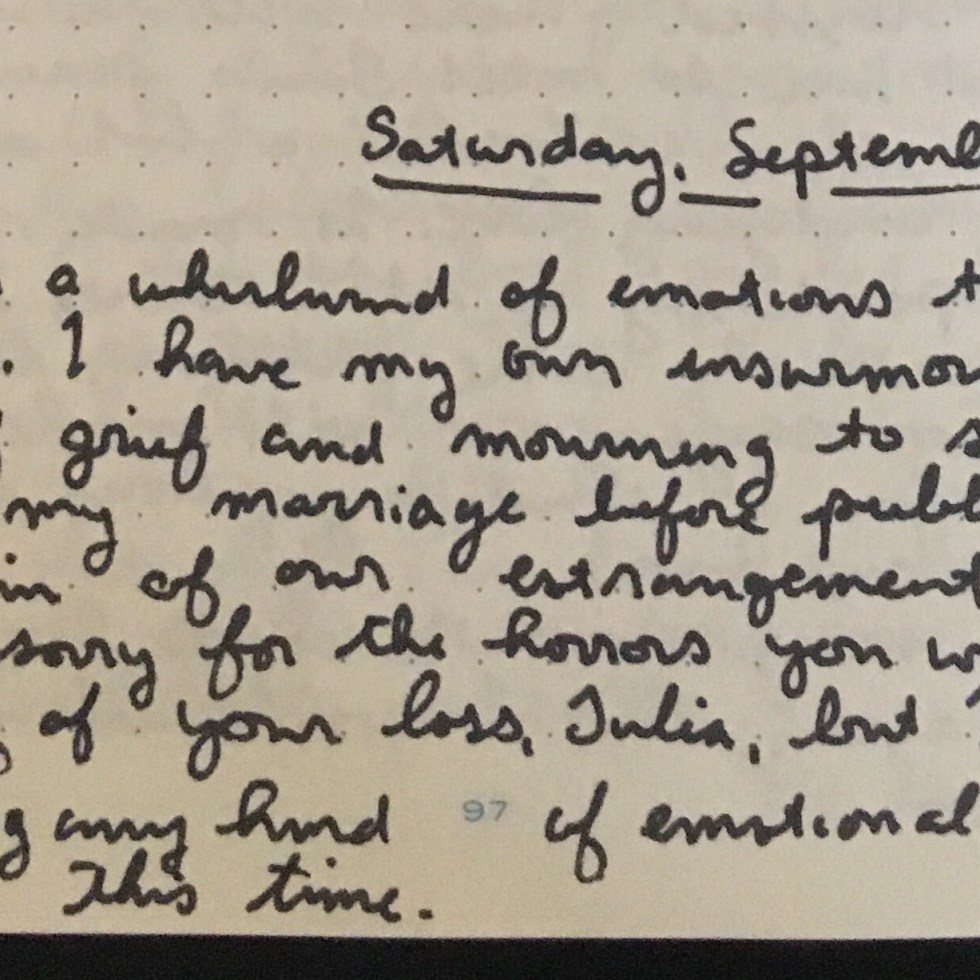 Saturday, Septemb
a whirlwind of emotions t
. I have my own insurmoun
grief and mourning to s
my marriage before publ
in of our estrangement
sorry for the horrors you w
of your loss, Julia, but
g any kind 97 of emotional
This time.